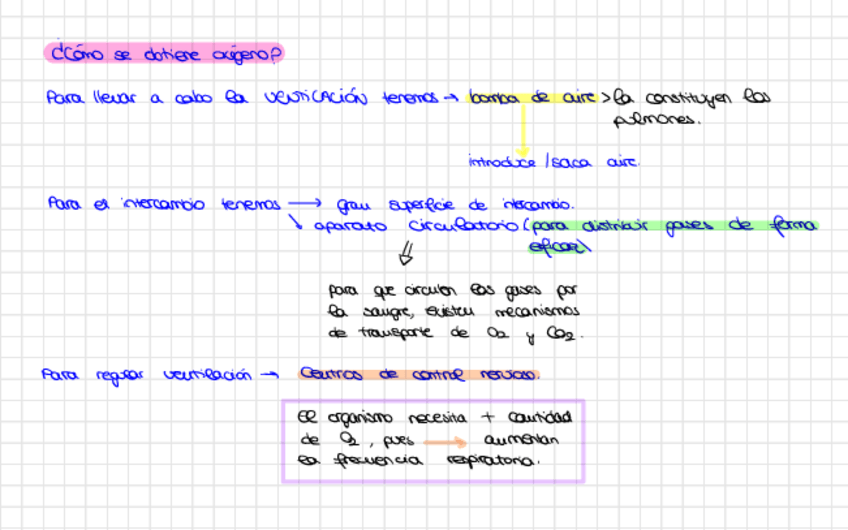 ¿Cómo se obtiene oxígeno?
Para llevar a cabo la VENTILACIÓN tenemos → bomba de aire > la constituyen los
pulmones.
introduce / saca aire.
Para el intercambio tenemos → gran superficie de intercambio.
↘ aparato circulatorio (para distribuir gases de forma
eficaz)
para que circulen los gases por
la sangre, existen mecanismos
de transporte de O2 y CO2.
Para regular ventilación → Centros de control nervioso.
El organismo necesita + cantidad
de O2, pues → aumentan
la frecuencia respiratoria.